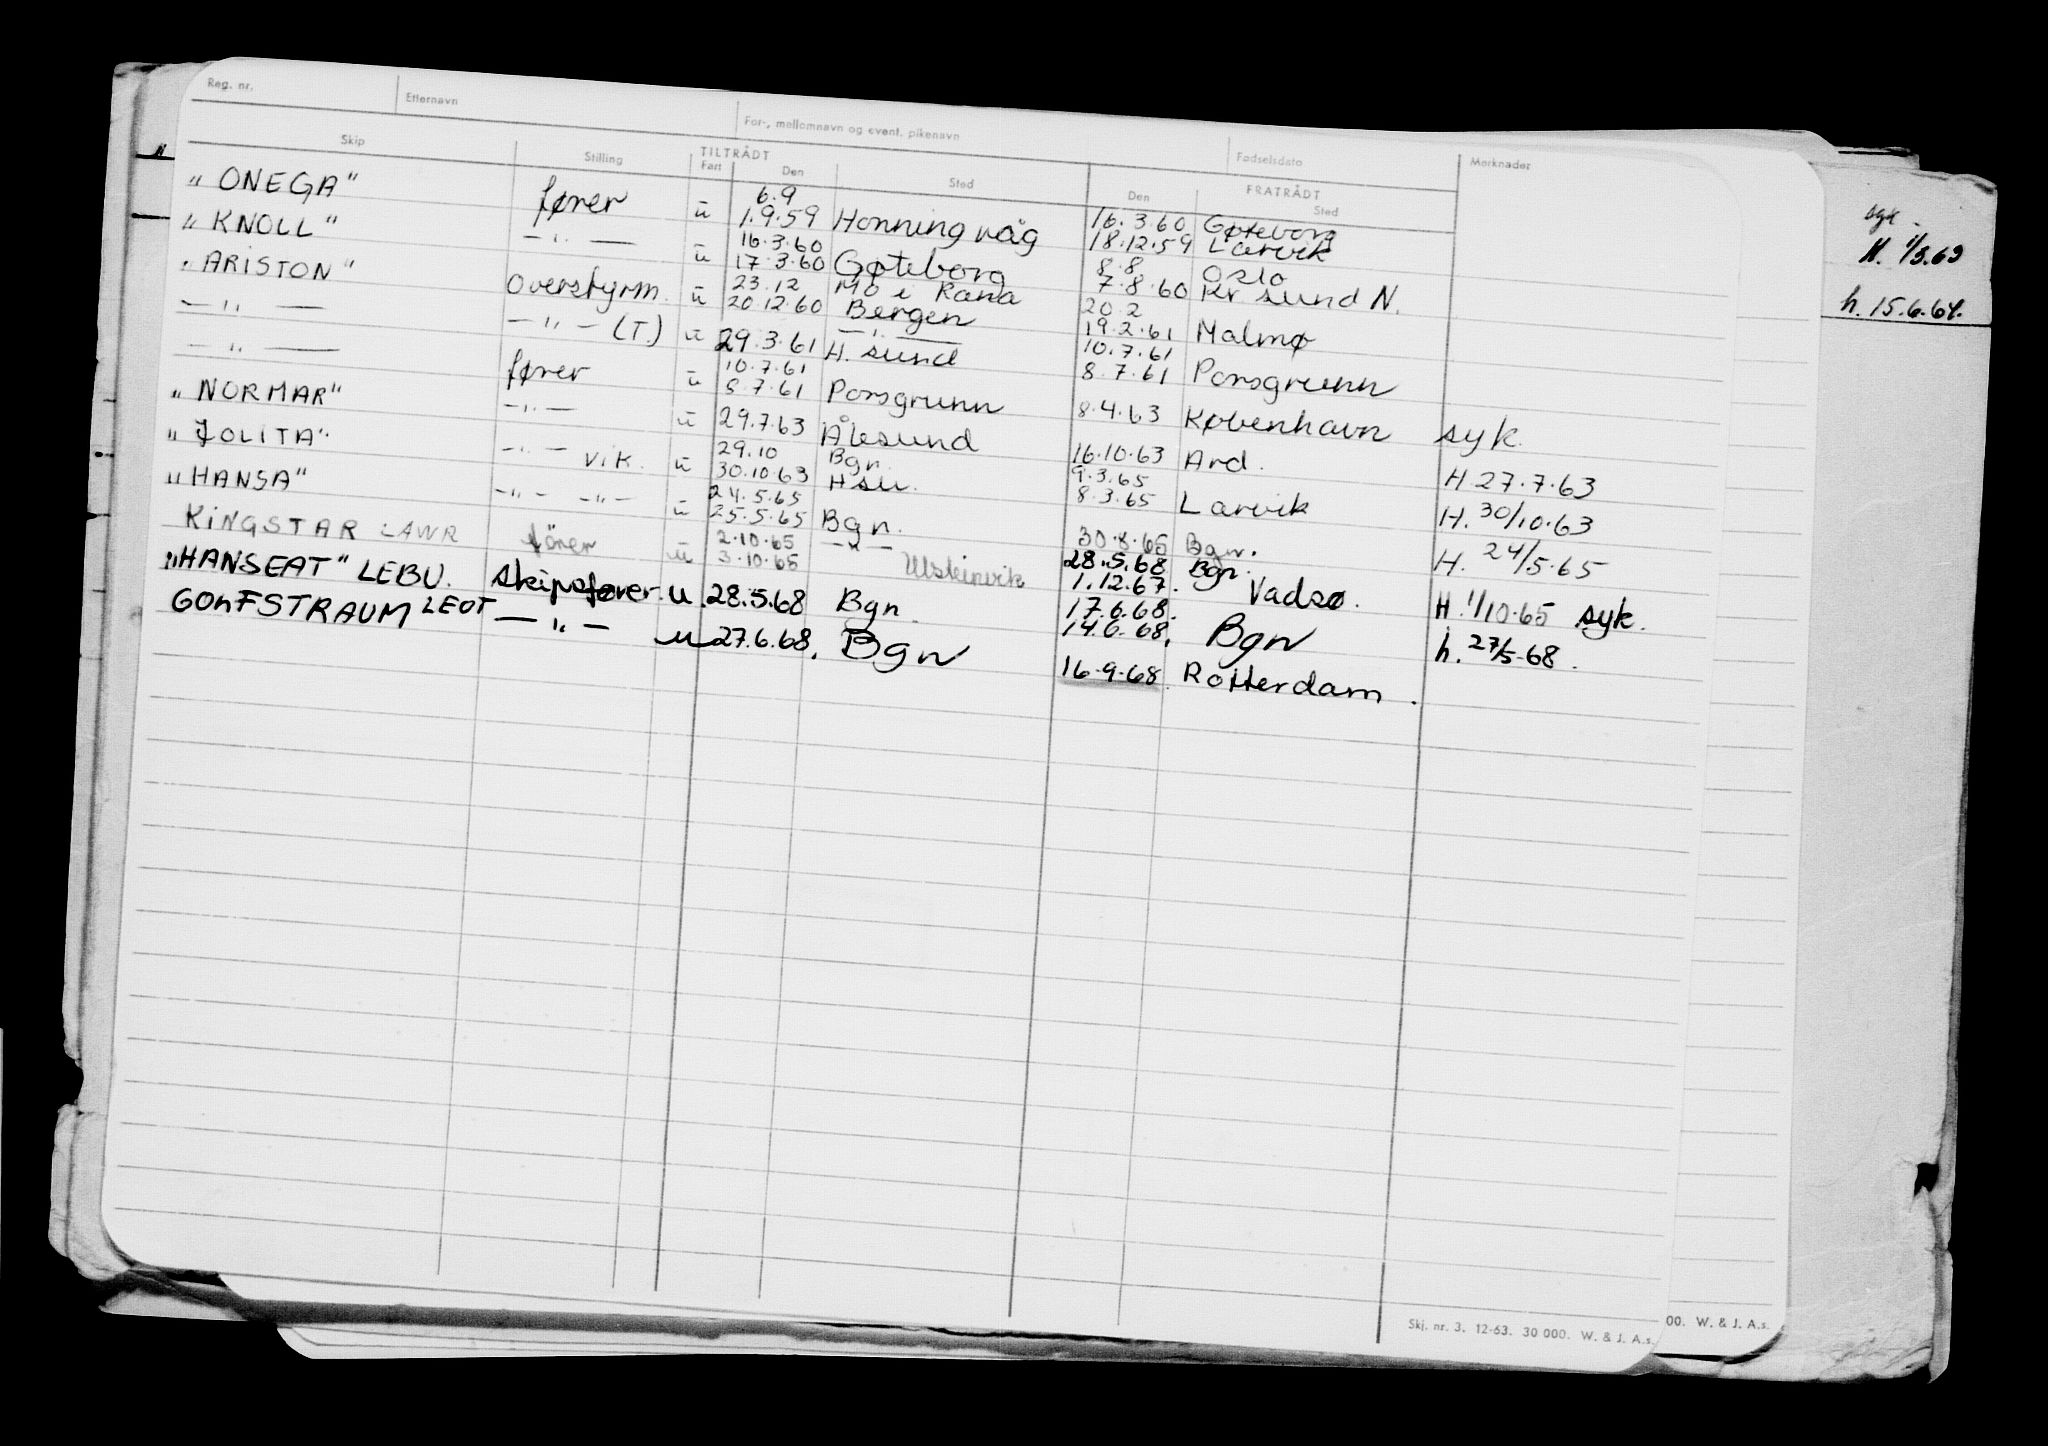 Reg. nr. Etternavn For-, mellomnavn og event. pikenavn Fødselsdato Merknader
Skip Stilling TILTRÅDT FRATRÅDT
Fart Den Sted Den Sted
"ONEGA" fører u 6.9 1.9.59 Honningvåg 16.3.60 18.12.59 Gøteborg Larvik
"KNOLL" —"— u 16.3.60 17.3.60 Gøteborg 8.8 7.8.60 Oslo Kr sund N.
"ARISTON" overstyrm. u 23.12 20.12.60 Mo i Rana Bergen 20.2 19.2.61 Malmø
—"— —"— (T.) u 29.3.61 —"— H. sund 10.7.61 8.7.61 Porsgrunn
—"— fører u 10.7.61 8.7.61 Porsgrunn 8.4.63 København syk.
"NORMAR" —"— u 29.7.63 Ålesund 16.10.63 Ard. H 27.7.63
"JOLITA" —"— vik. u 29.10 30.10.63 Bgn. Hsu. 9.3.65 8.3.65 Larvik H. 30/10.63
"HANSA" —"— —"— u 24.5.65 25.5.65 Bgn. 30.8.65 Bgn. H. 24/5.65
KINGSTAR LAWR fører u 2.10.65 3.10.65 —"— Ulsteinvik 28.5.68 1.12.67. Bgn. Vadsø. H. 1/10.65 syk.
"HANSEAT" LEBU. skipsfører. u. 28.5.68 Bgn. 17.6.68. 14.6.68. Bgn h. 27/5-68.
GOLFSTRAUM LEOT —"— u 27.6.68. Bgn 16.9.68. Rotterdam.
H. 1/3.63
h. 15.6.64.
Skj. nr. 3. 12-63. 30 000. W. & J. A.s. 00. W. & J. A.s.